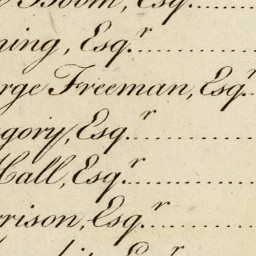 Boom, Esq.
ning, Esq.r
rge Freeman, Esq.r
gory, Esq.r
Hall, Esq.r
rrison, Esq.r
Esq.r